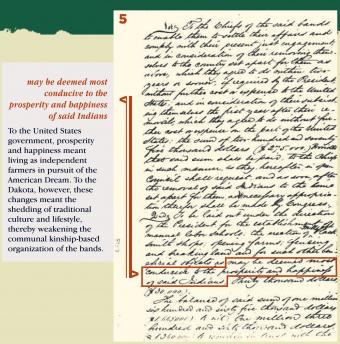 5
may be deemed most
conducive to the
prosperity and happiness
of said Indians
To the United States
government, prosperity
and happiness meant
living as independent
farmers in pursuit of the
American Dream. To the
Dakota, however, these
changes meant the
shedding of traditional
culture and lifestyle,
thereby weakening the
communal kinship-based
organization of the bands.
To the Chiefs of the said bands
to enable them to settle their affairs and
comply with their present just engagement;
and in consideration of their removing them-
selves to the country set apart for them as
above, which they agree to do within two
years or sooner, if required by the President,
without further cost or expense to the United
States, and in consideration of their subsist-
ing themselves the first year after their re-
moval, which they agree to do without fur-
ther cost or expense on the part of the United
States, the sum of two hundred and seventy
five thousand dollars ($275,000) Provided
that said sum shall be paid to the Chiefs
in such manner as they hereafter in open
Council shall request and as soon after
the removal of said Indians to the home
set apart for them as necessary appropria-
tion therefor shall be made by Congress.
2nd. To be laid out under the direction
of the President for the establishment of
manual labor schools; the erection of mills
smith shops, opening farms, fencing
and breaking land and for such other bene-
ficial objects as may be deemed most
conducive to the prosperity and happiness
of said Indians thirty thousand dollars
($30,000).
The balance of said sum of one million
six hundred and sixty five thousand dollars
($1,665,000) to wit: One million three
hundred and sixty thousand dollars